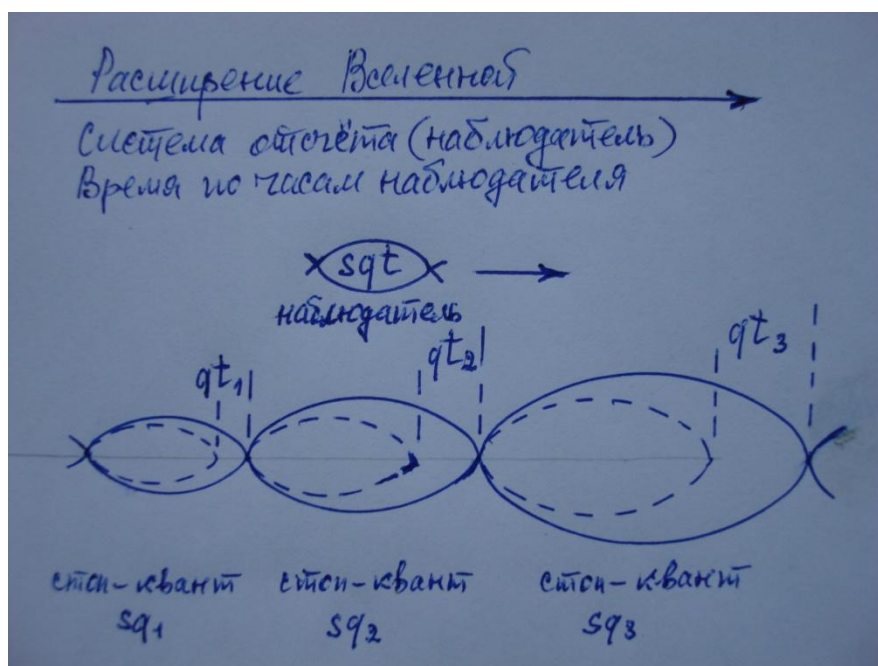 Расширение Вселенной
Система отсчёта (наблюдатель)
Время по часам наблюдателя
sqt
наблюдатель
qt₁ qt₂ qt₃
стоп-квант стоп-квант стоп-квант
sq₁ sq₂ sq₃